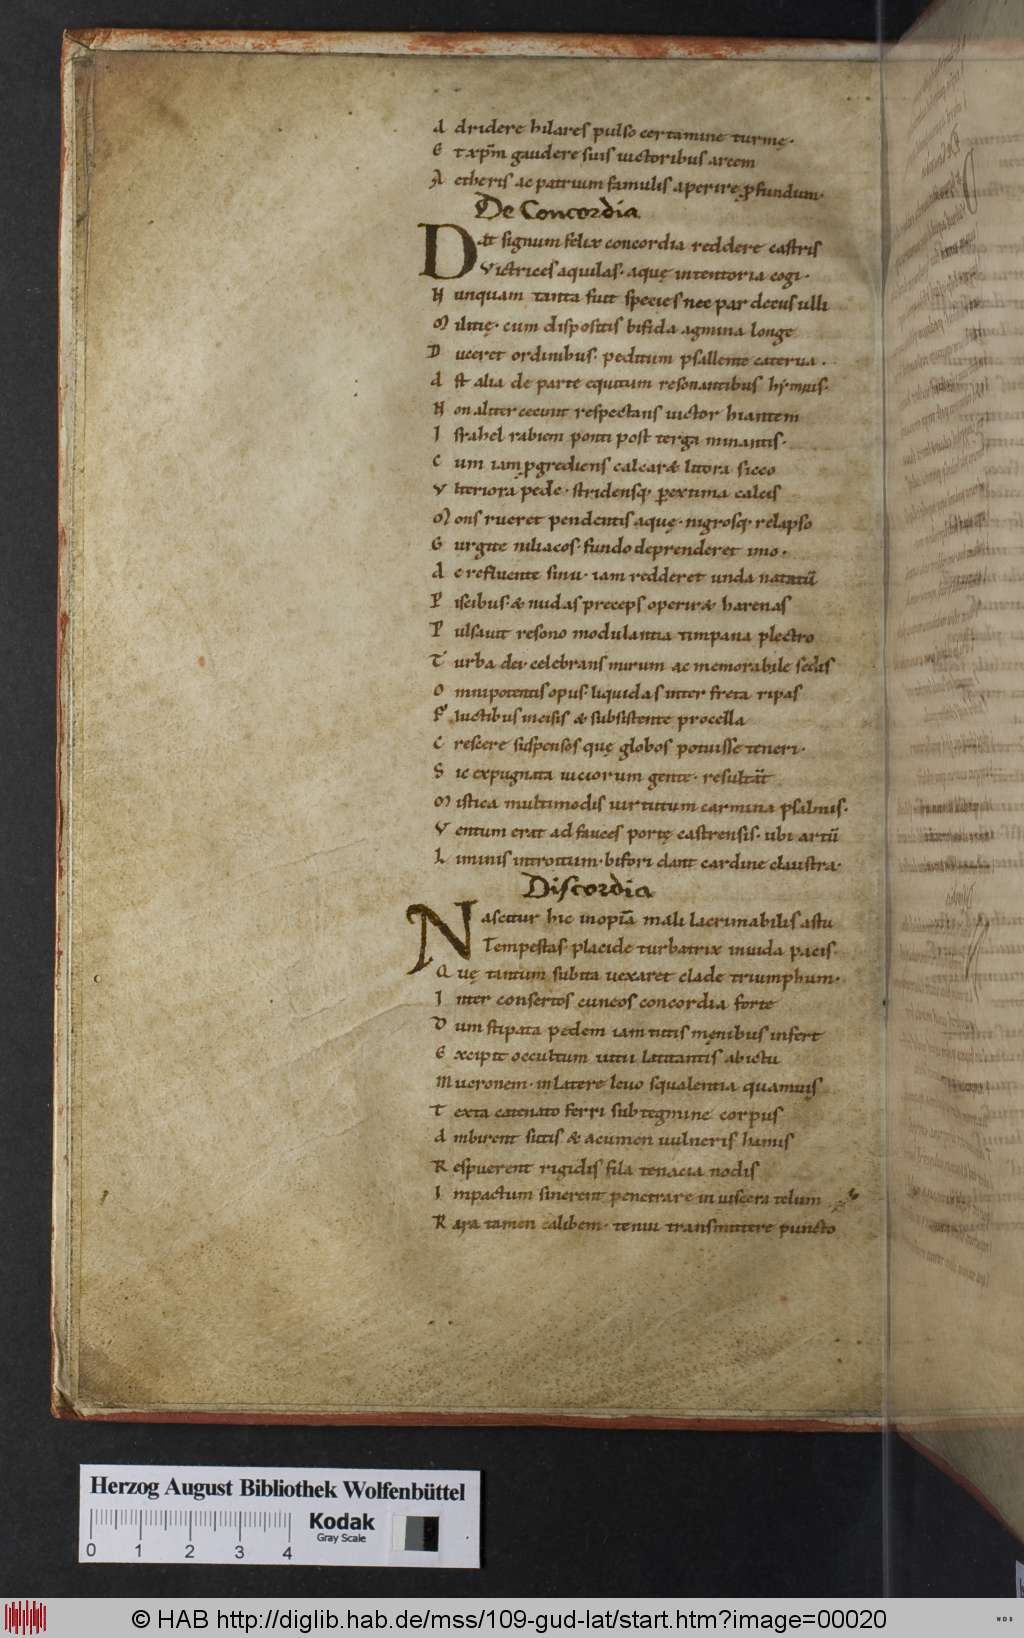 A dridere hilares pulso certamine turmę·
E t xp̄m gaudere suis uictoribus arcem
A etheris ac patrium famulis aperire ꝓfundum·
De Concordia
D at̄ signum felix concordia reddere castris
Victrices aquilas· aquę in tentoria cogi·
N unquam tanta fuit species nec par decus ulli
M ilitię· cum dispositis bifida agmina longe
D uceret ordinibus· peditum psallente caterua·
A st alia de parte equitum resonantibus hymnis·
N on aliter cecinit respectans uictor hiantem
I strahel rabiem ponti post terga minantis·
C um iam ꝓgrediens calcar& litora sicco
V lteriora pede· stridensq· ꝑ extima calcis
M ons rueret pendentis aquę· nigrosq· relapso
G urgite niliacos· fundo deprenderet imo·
A c refluente sinu· iam redderet unda natatū
P iscibus· & nudas preceps operir& harenas
P ulsauit resono modulantia timpana plectro
T urba dei· celebrans mirum ac memorabile seclis
O mnipotentis opus· liquidas inter freta ripas
F luctibus incisis & subsistente procella
C rescere suspensos quę globos potuisse teneri·
S ic expugnata uiciorum gente· resultāt
M istica multimodis uirtutum carmina psalmis·
V entum erat ad fauces portę castrensis· ubi artū
L iminis introitum· bifori dant cardine claustra·
Discordia
N ascitur hic inopīa mali lacrimabilis astu
Tempestas· placide turbatrix inuida pacis·
Q uę tantum subita uexaret clade triumphum·
I nter consertos cuneos concordia forte
D um stipata pedem iam tutis męnibus infert
E xcipit occultum uitii latitantis abictu
M ucronem· in latere leuo squalentia quamuis
T exta catenato ferri subtegmine corpus
A mbirent sutis & acumen uulneris hamis
R espuerent rigidis fila tenacia nodis
I npactum sinerent penetrare in uiscera telum
R ara tamen calibem· tenui transmittere puncto
Herzog August Bibliothek Wolfenbüttel
Kodak
Gray Scale
0 1 2 3 4
© HAB http://diglib.hab.de/mss/109-gud-lat/start.htm?image=00020